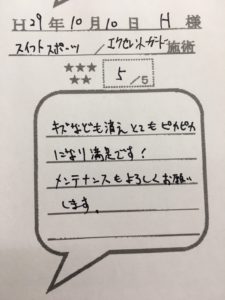 H29年10月10日 H 様
スイフトスポーツ/エクセレントガード施術
★★★
★★
5/5
キズなども消えとてもピカピカ
になり満足です!
メンテナンスもよろしくお願い
します。